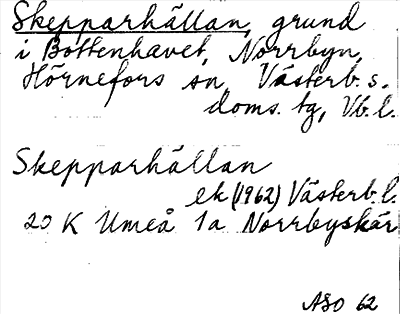 Skepparhällan, grund
i Bottenhavet, Norrbyn,
Hörnefors sn, Västerb. s.
doms. tg, Vb. l.
Skepparhällan
ek (1962) Västerb. l.
20 K Umeå 1a Norrbyskär
ASO 62